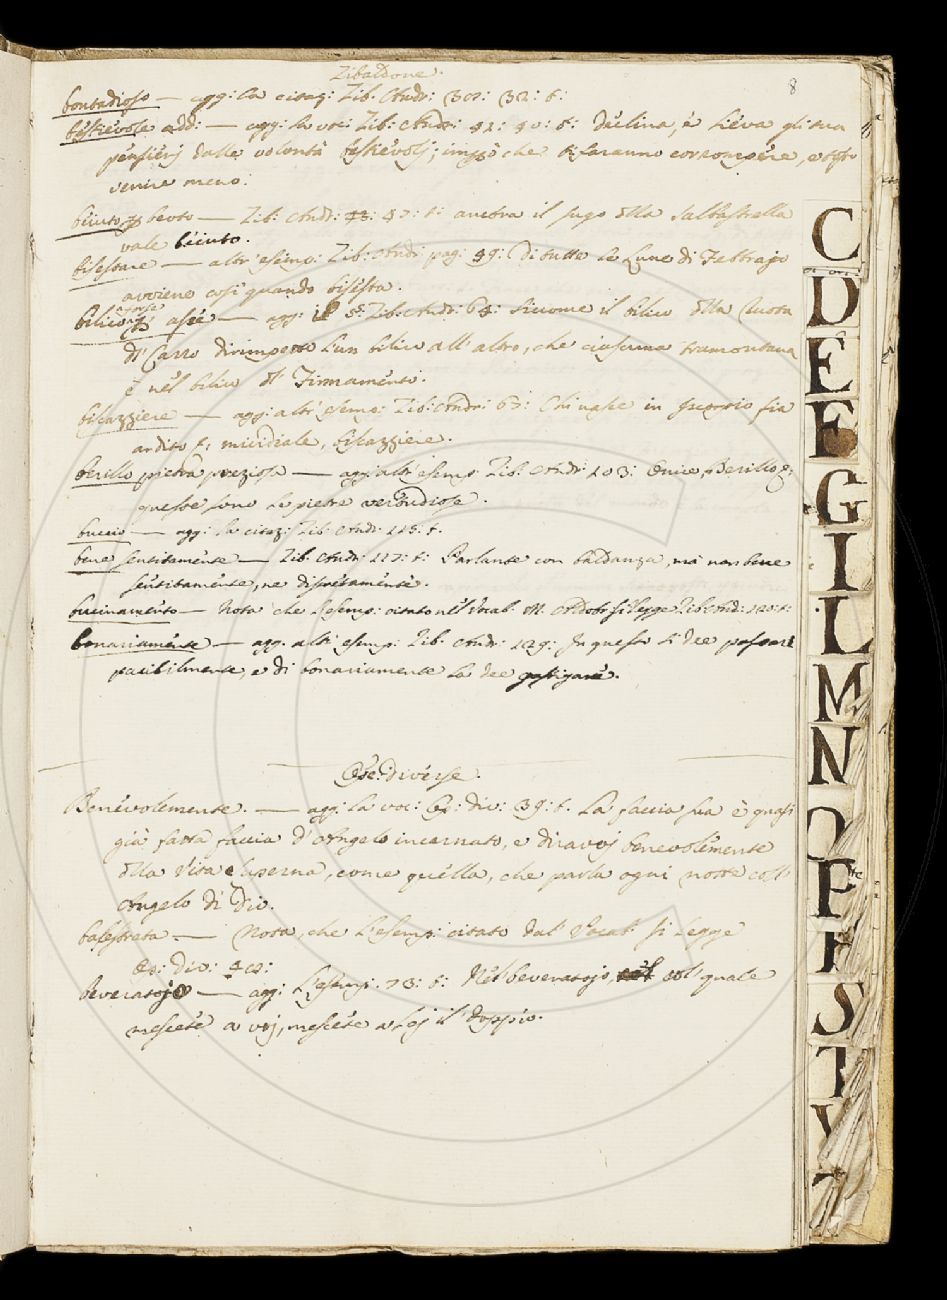 Zibaldone.
8
bontadioso — agg: la citaz: Zib: Andr: 32: t:
bestievole add: — agg: la voc: Zib: Andr: t: declina, e lieva gli tua
pensieri dalle volontà bestievoli; che ti faranno corrompere, e
venire meno:
beuto — Zib: Andr: 47: t: ancora il sugo della salbastrella
vale beuto.
bisestare — altr' esemp: Zib: Andr: pag: 49: Di tutte le Lune di Febbrajo
avviene così quando bisesta.
bilico — agg: il 5: Zib: Andr: 64: siccome il bilico della Ruota
del Carro dirimpetto l'un bilico all' altro, che ciascuna tramontana
è nel bilico del Firmamento:
biscazziere — agg: altr' esemp: Zib: Andr: 67: Chi nasce in Scorpio sia
ardito micidiale, biscazziere.
berillo pietra preziosa — agg: altr' esemp: Zib: Andr: 103: Onice, Berillo
queste sono le pietre
buccio — agg: la citaz: Zib: Andr: 115: t.
bene sentitamente — Zib: Andr: 117: t: Parlante con baldanza, ma non bene
sentitamente, ne discretamente.
bucinamento — Nota che l'esemp: citato nel Vocab: M. Aldobr: si legge Zib: Andr: 120: t:
bonariamente — agg: altr' esemp: Zib: Andr: 129: In questa si dee passare
pacibilmente, e di bonariamente la dee gastigare.
Op: diverse.
Benevolemente. — agg: la voc: Op: div: 39: t. La faccia sua è quasi
già fatta faccia d' Angelo incarnato, e diravvi benevolemente
della Vita eterna, come quella, che parla ogni notte coll'
Angelo di Dio.
balestrata — Nota, che l'esemp: citato dal Vocab: si legge
Op: div:
beveratojo — agg: l'esemp: 73: t: Nel beveratojo, col quale
mescete a voi, mescete a Lej il doppio.
C
D
E
F
G
I
L
M
N
O
P
S
T